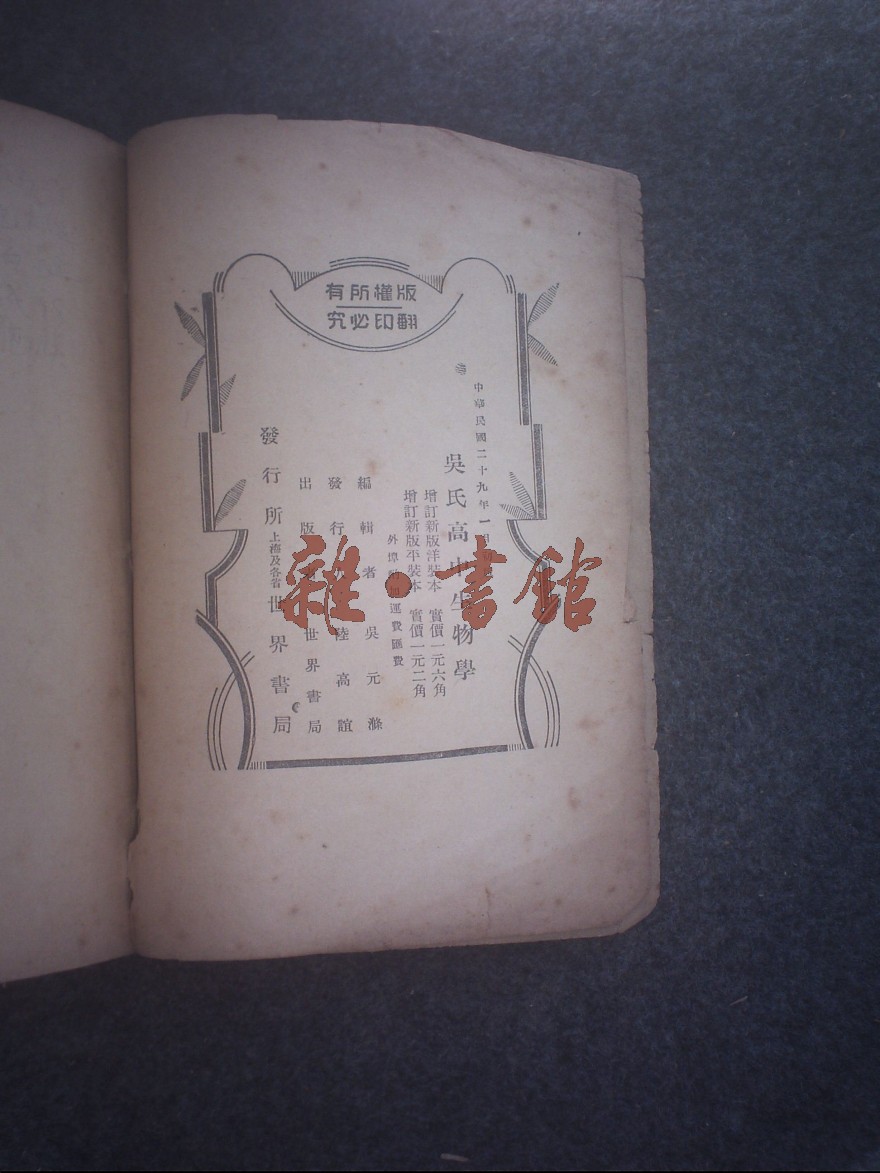 版權所有
翻印必究
中華民國二十九年一月
吳氏高中生物學
增訂新版洋裝本 實價一元六角
增訂新版平裝本 實價一元二角
外埠運費匯費
編輯者 吳元滌
發行人 陸高誼
出版者 世界書局
發行所 上海及各省 世界書局
雜·書館